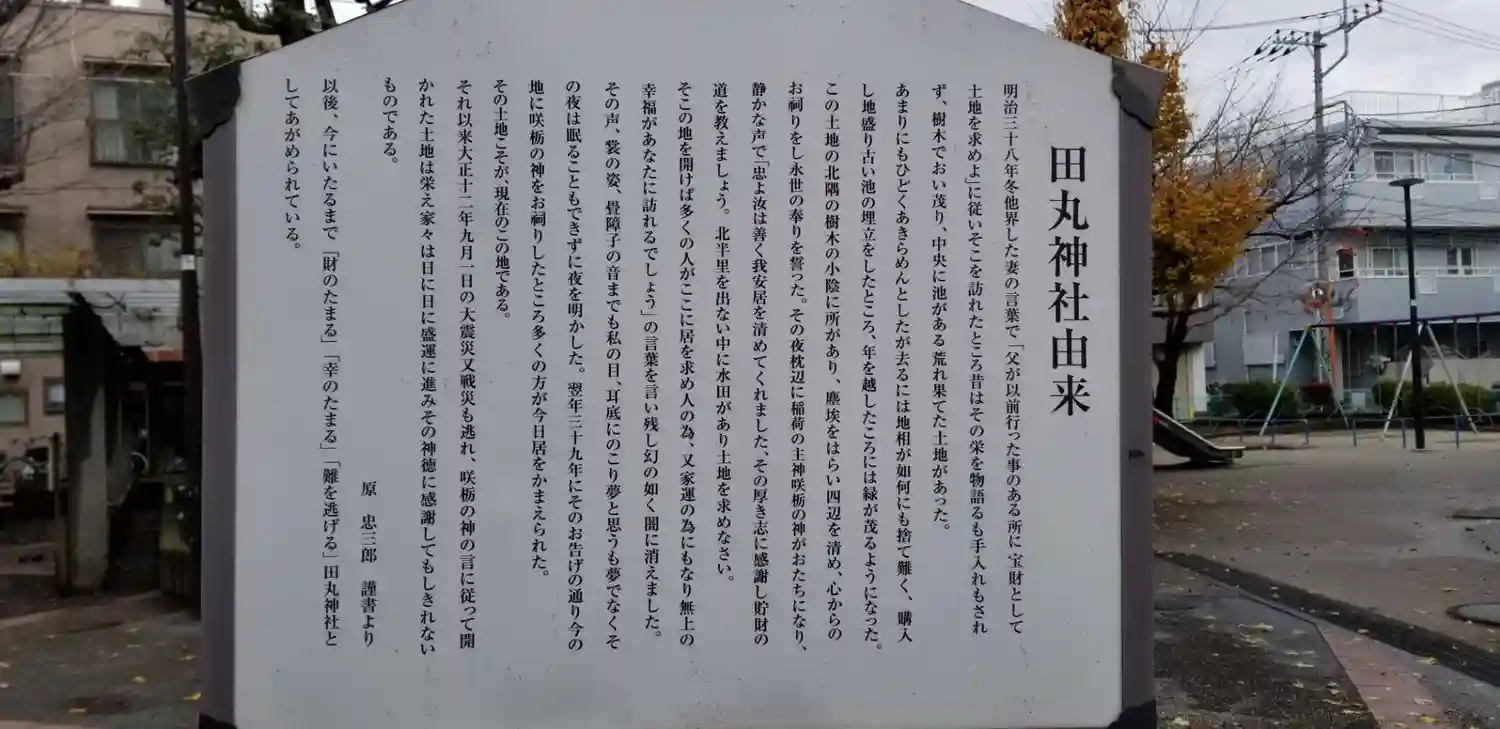 田丸神社由来
明治三十八年冬他界した妻の言葉で「父が以前行った事のある所に宝財として
土地を求めよ」に従いそこを訪れたところ昔はその栄を物語るも手入れもされ
ず、樹木でおい茂り、中央に池がある荒れ果てた土地があった。
あまりにもひどくあきらめんとしたが去るには地相が如何にも捨て難く、購入
し地盛り古い池の埋立をしたところ、年を越したころには緑が茂るようになった。
この土地の北隅の樹木の小陰に所があり、塵埃をはらい四辺を清め、心からの
お祠りをし永世の奉りを誓った。その夜枕辺に稲荷の主神咲栃の神がおたちになり、
静かな声で「忠よ汝は善く我安居を清めてくれました、その厚き志に感謝し貯財の
道を教えましょう。北半里を出ない中に水田があり土地を求めなさい。
そこの地を開けば多くの人がここに居を求め人の為、又家運の為にもなり無上の
幸福があなたに訪れるでしょう」の言葉を言い残し幻の如く闇に消えました。
その声、裳の姿、畳障子の音までも私の目、耳底にのこり夢と思うも夢でなくそ
の夜は眠ることもできずに夜を明かした。翌年三十九年にそのお告げの通り今の
地に咲栃の神をお祠りしたところ多くの方が今日居をかまえられた。
その土地こそが、現在のこの地である。
それ以来大正十二年九月一日の大震災又戦災も逃れ、咲栃の神の言に従って開
かれた土地は栄え家々は日に日に盛運に進みその神徳に感謝してもしきれない
ものである。
原 忠三郎 謹書より
以後、今にいたるまで「財のたまる」「幸のたまる」「難を逃げる」田丸神社と
してあがめられている。